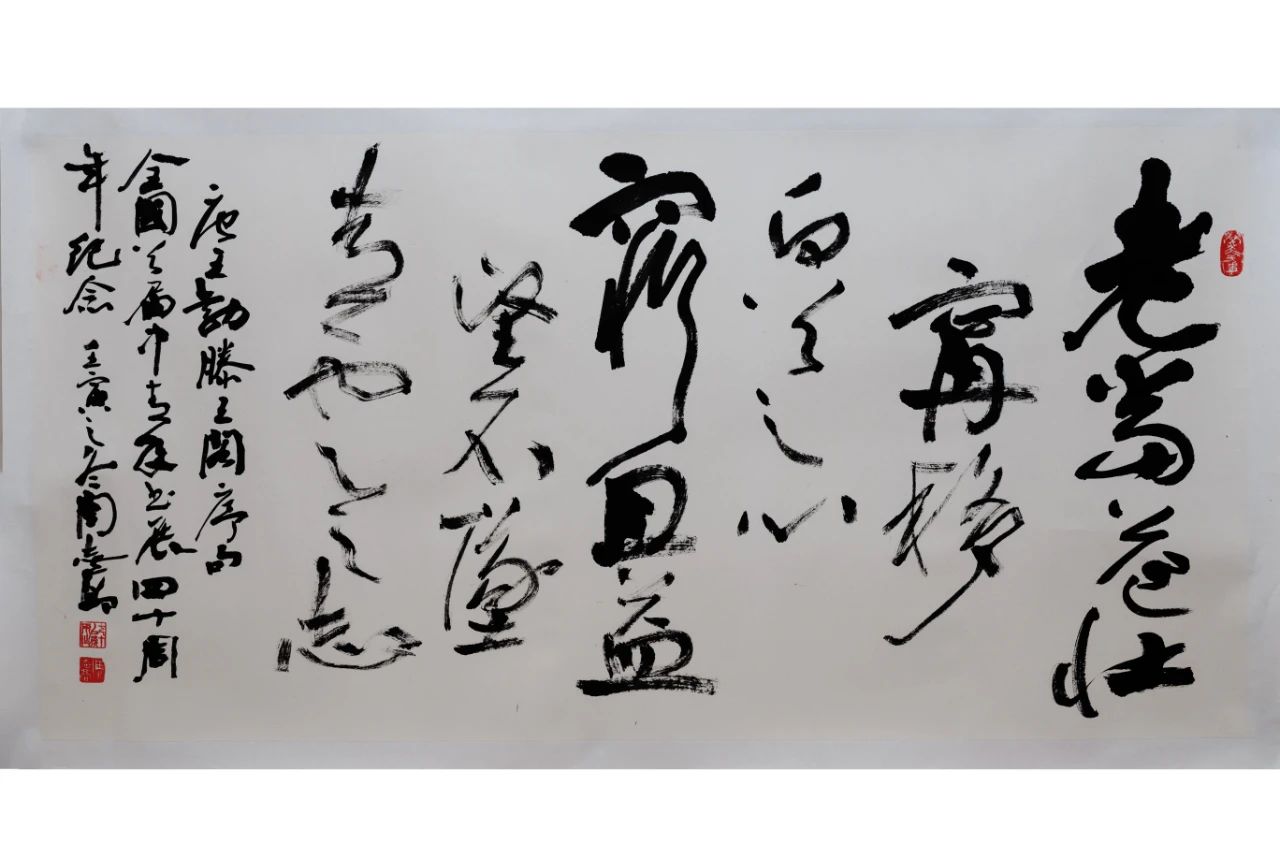 老當益壮
寧移
白首之心
窮且益
堅不墜
青雲之志
唐王勃滕王閣序句
全國首届中青年书展四十周
年纪念 壬寅之冬周志高